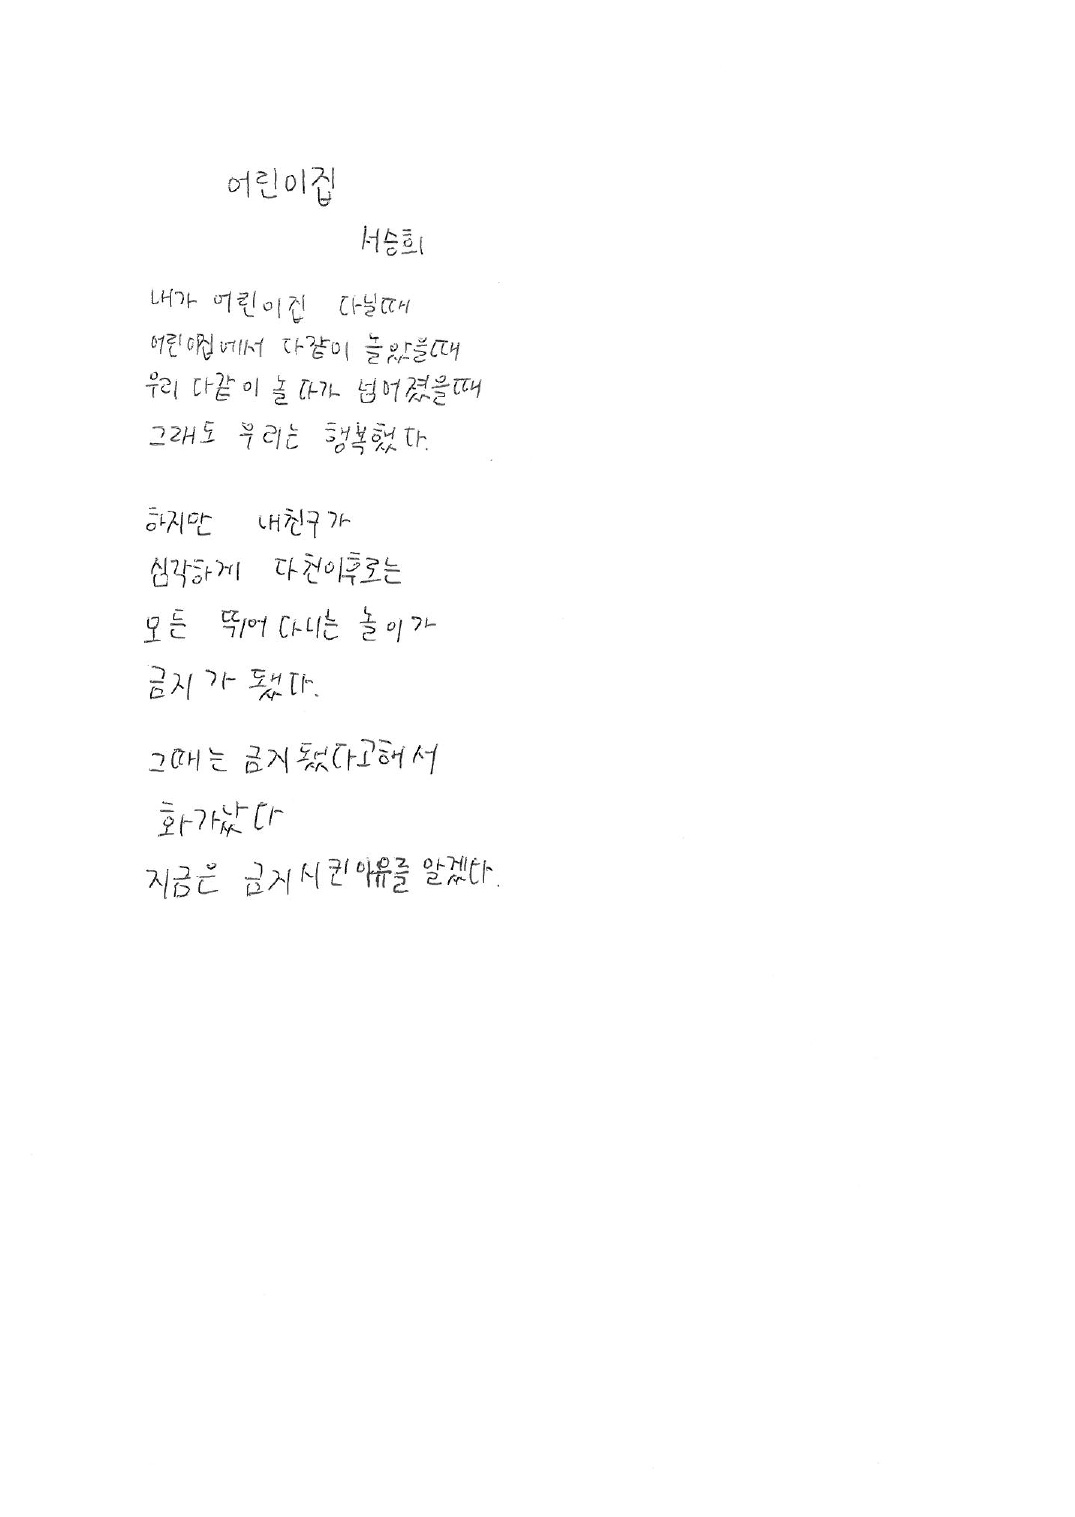 어린이집
서승희
내가 어린이집 다닐때
어린이집에서 다같이 놀았을때
우리 다같이 놀다가 넘어졌을때
그래도 우리는 행복했다.
하지만 내친구가
심각하게 다친이후로는
모든 뛰어다니는 놀이가
금지가 됐다.
그때는 금지됐다고해서
화가났다
지금은 금지시킨이유를 알겠다.